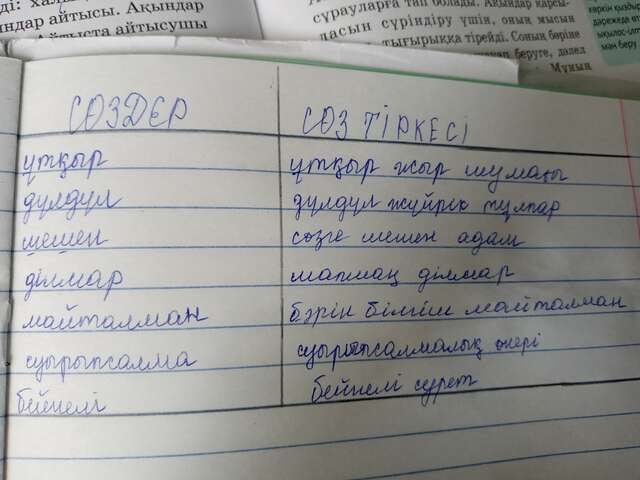 ді: хал
ндар айтысы. Ақындар
Айтыста айтысушы
сұрауларға тап болады. Ақындар қарсы-
ласын сүріндіру үшін, оның мысын
тығырыққа тірейді. Соның бәріне
беруге, дәлел
Мұның
көркін қыздыр
дәрежеде
ман беру
СӨЗДЕР СӨЗ ТІРКЕСІ
ұтқыр ұтқыр жыр шумағы
дүлдүл дүлдүл жүйрік тұлпар
шешен сөзге шешен адам
ділмар мапмаң ділмар
майталман бәрін білгіш майталман
суырыпсалма суырыпсалмалық өнері
бейнелі бейнелі сурет